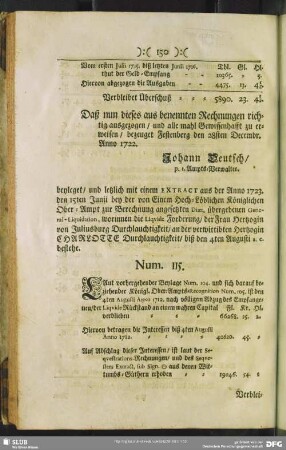 ):( 130 ):(
Vom ersten Julii 1715. biß letzten Junii 1716. Thl. Gl. Hl.
thut der Geld-Empfang - - 10365. - 5.
Hiervon abgezogen die Ausgaben - - 4475. 13.
Verbleibet Uberschuß 5890. 23.
Daß nun dieses aus benennten Rechnungen rich-
tig ausgezogen / und alle mahl Gewissenhafft zu er-
weisen / bezeuget Festenberg den 28sten Decembr.
Anno 1722.
Johann Teutsch /
p. t. Ampts-Verwalter.
beyleget / und letzlich mit einem EXTRACT aus der Anno 1723.
den 25ten Junii bey der von Einem Hoch-Löblichen Königlichen
Ober-Ampt zur Berechnung angesetzten Diæt, übergebenen Gene-
ral-Liquidation, worinnen die Liquide Forderung der Frau Hertzogin
von Juliusburg Durchlauchtigkeit / an der verwittibten Hertzogin
CHARLOTTE Durchlauchtigkeit / biß den 4ten Augusti a. c.
bestehe.
Num. 115.
Laut vorhergehender Beylage Num. 104. und sich darauf be-
ziehender Königl. Ober-Amptsrecognition Num. 105. ist den
4ten Augusti Anno 1712. nach völligen Abzug des Empfange-
nen / der Liquide Rückstand an einem wahren Capital Fl. Kr. Hl.
verblieben 15. 2.
Hiervon betragen die Interessen biß 4ten Augusti
Anno 1712. 45.
Auf Abschlag dieser Interessen / ist laut der Se-
questrations-Rechnungen / und des
Extract, sub sign. aus denen Wit-
tumbs-Gütthern erhoben 54. 8
Verblei-
SLUB
DFG